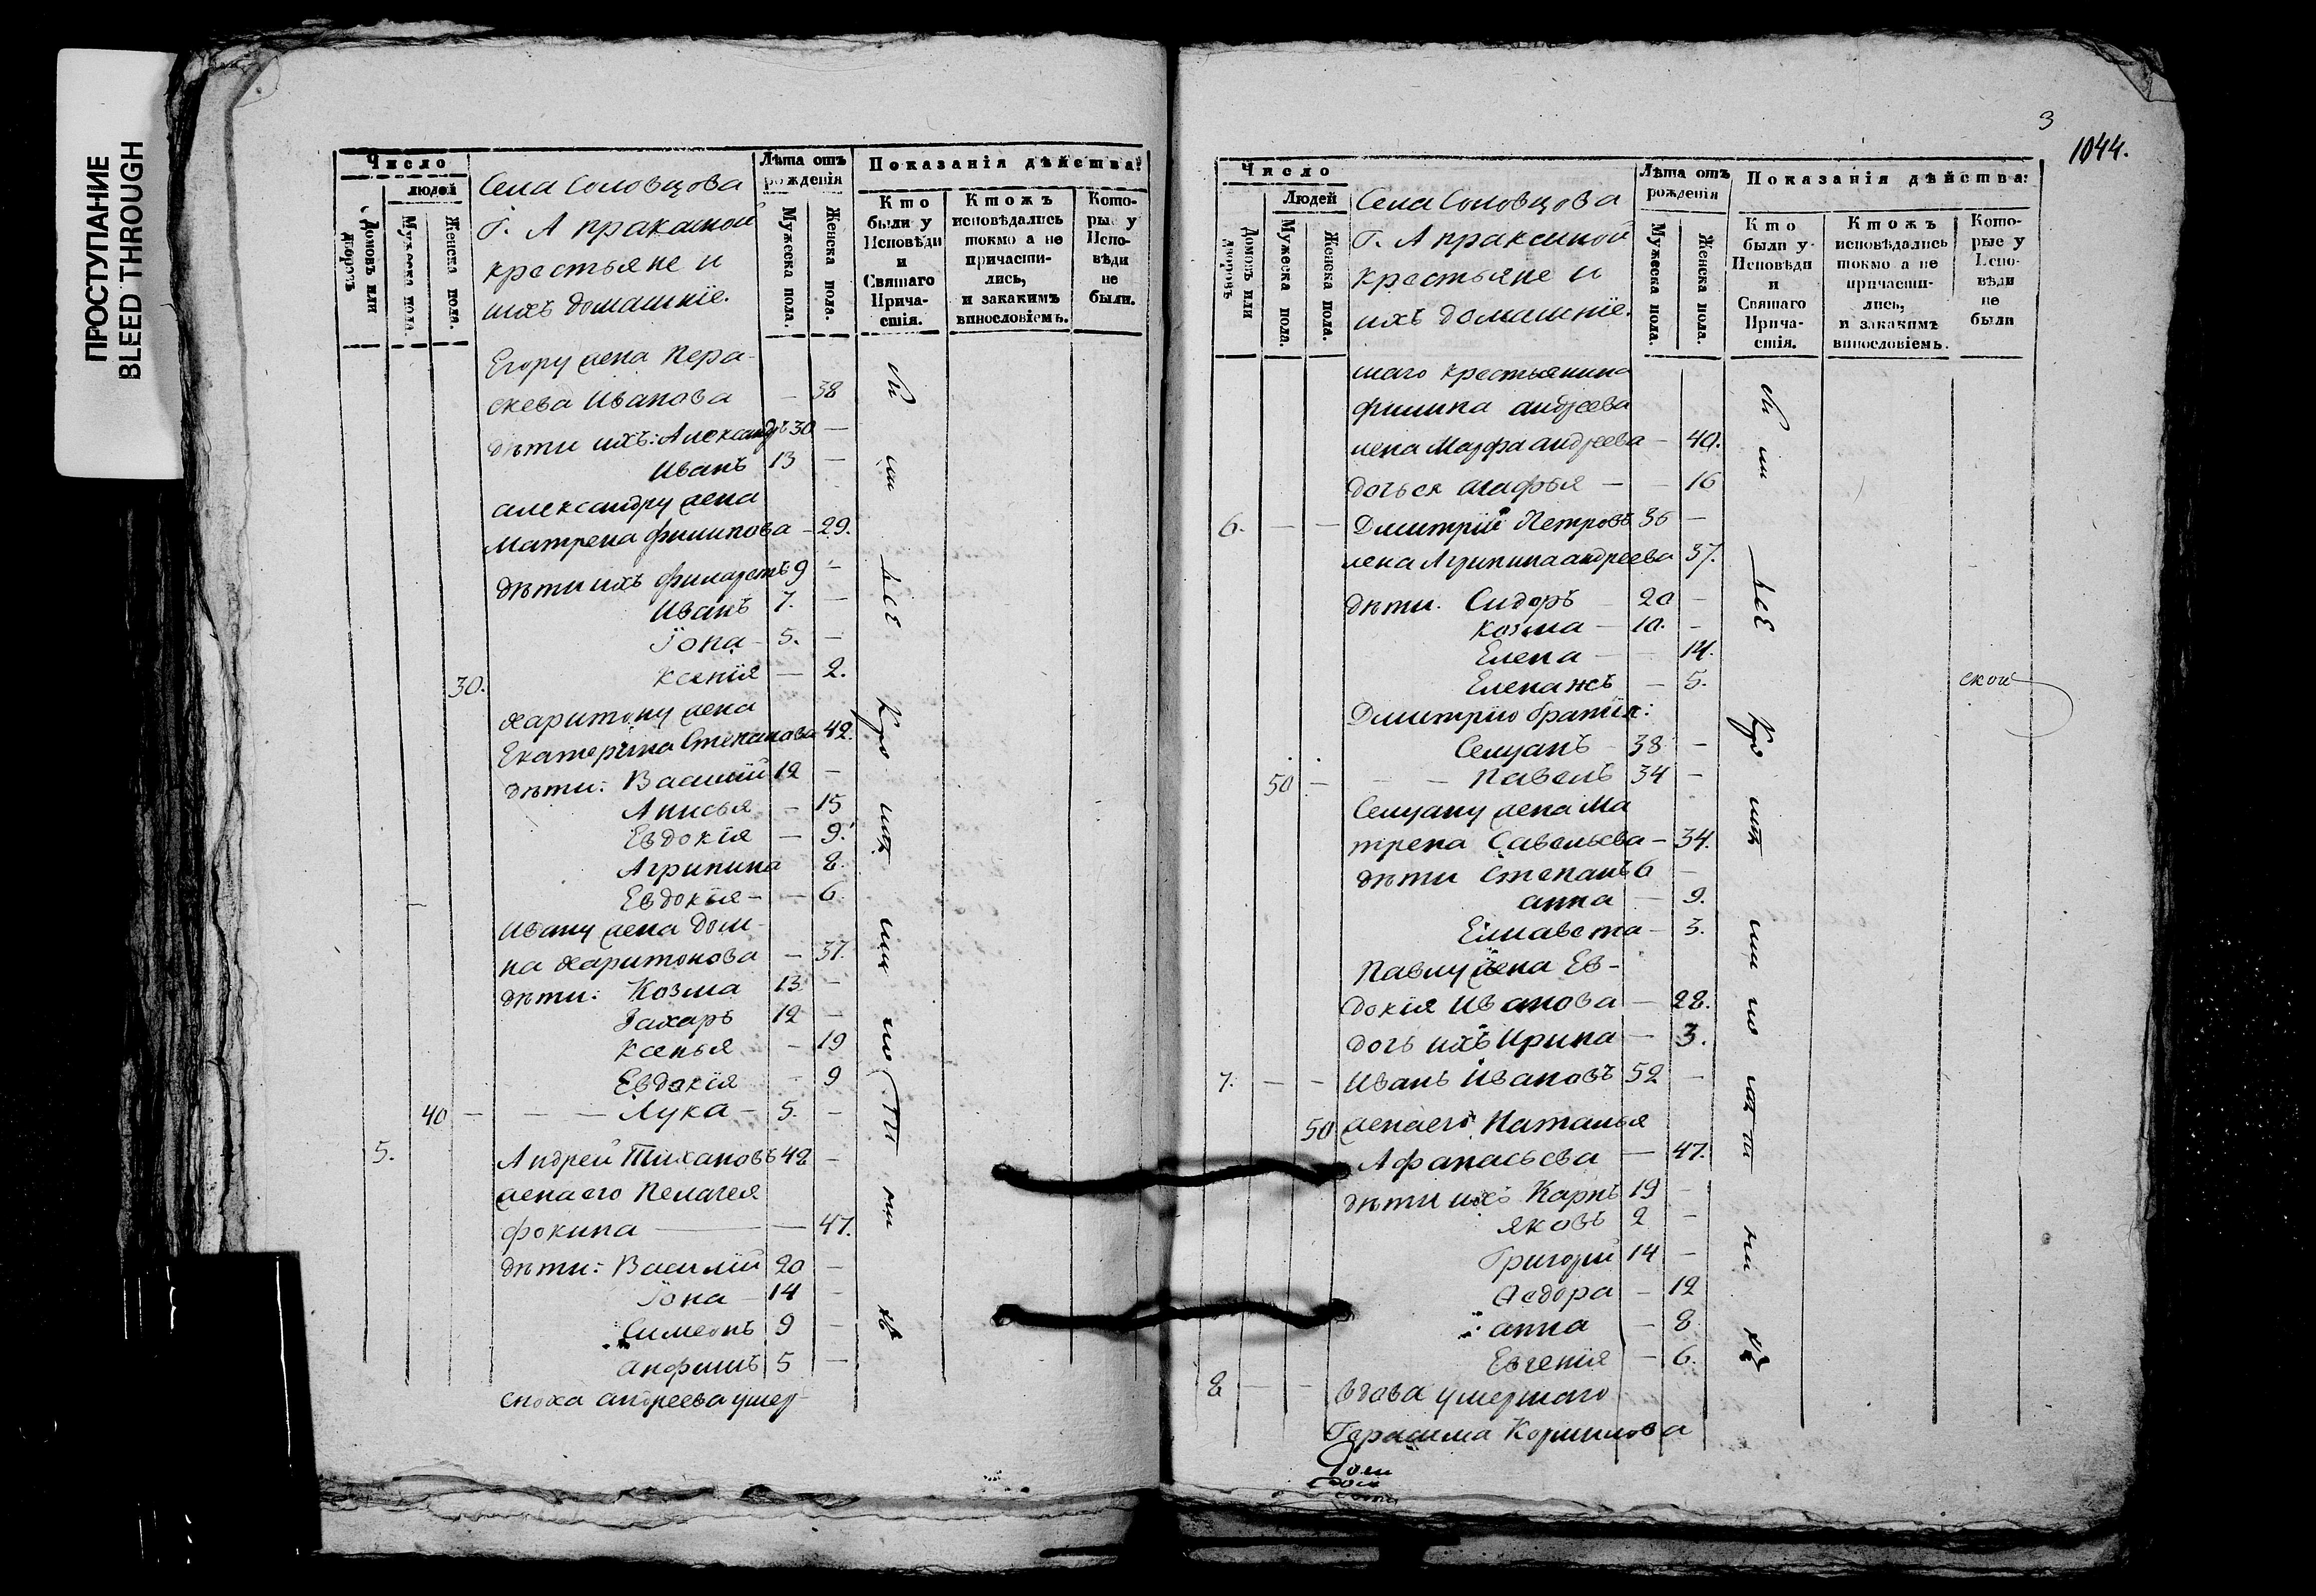 ПРОСТУПАНИЕ
BLEED THROUGH
Число
людей
Домовъ или дворовъ
Мужеска пола.
Женска пола.
Села Соловцова
Г. Апраксиной
крестьяне и
ихъ домашнїе.
Лѣта отъ рожденія
Мужеска пола.
Женска пола.
Показанія дѣйства:
Кто были у Исповѣди и Святаго Причастія.
Ктожъ исповѣдались токмо а не причастились, и закакимъ винословіемъ.
Которые у Исповѣди не были.
Егору жена Пера-
скева Иванова — 38
дѣти ихъ: Александръ 30 —
Иванъ 13 —
Александру жена
Матрена Филипова — 29.
дѣти ихъ Филаретъ 9 —
Иванъ 7. —
Їона — 5. —
30. Ксенїя — 2.
Харитону жена
Екатерина Степанова 42.
дѣти: Василїй 12 —
Анисья — 15
Евдокїя — 9.
Агрипина 8.
Евдокїя — — 6.
Ивану жена Дом-
на Харитонова — 37.
дѣти: Козма 13 —
Захаръ 12 —
Ксенья — 19
Евдокїя — 9
40 — — — Лука — 5. —
5. Андрей Тихановъ 42 —
жена его Пелагея
Фокина — 47.
дѣти: Василїй 20 —
Їона — 14 —
Симеонъ 9 —
Анфимъ 5 —
сноха Андреева умер-
3
1044.
Число
Людей
Домовъ или дворовъ
Мужеска пола.
Женска пола.
Села Соловцова
Г. Апраксиной
крестьяне и
ихъ домашнїе.
Лѣта отъ рожденія
Мужеска пола.
Женска пола.
Показанія дѣйства:
Кто были у Исповѣди и Святаго Причастія.
Ктожъ исповѣдались токмо а не причастились, и закакимъ винословіемъ.
Которые у Исповѣди не были
шаго крестьянина
Филипа Андреева
жена Марфа Андреева — 40.
дочь ея Агафья — — 16
6. — — Дмитрїй Петровъ 36 —
жена Агрипина Андреева 37.
дѣти. Сидоръ 20 —
Козма — 10. —
Елена — 14.
Елена жъ — 5.
Дмитрїю братїя:
Селуанъ 38 —
50 — — — Павелъ 34 —
Селуану жена Ма
трена Савельева — 34.
дѣти Степанъ 6 —
Анна — 9.
Елисавета — 3.
Павлу жена Ев-
докїя Иванова — 28.
дочь ихъ Ирина — 3.
7. — — Иванъ Ивановъ 52 —
50 жена его Наталья
Афанасьева — 47.
дѣти ихъ Карпъ 19 —
Яковъ 2 —
Григорїй 14 —
Ѳедора — 12
Анна — 8
Евгенїя — 6.
8 — — вдова умершаго
Герасима Корнилова